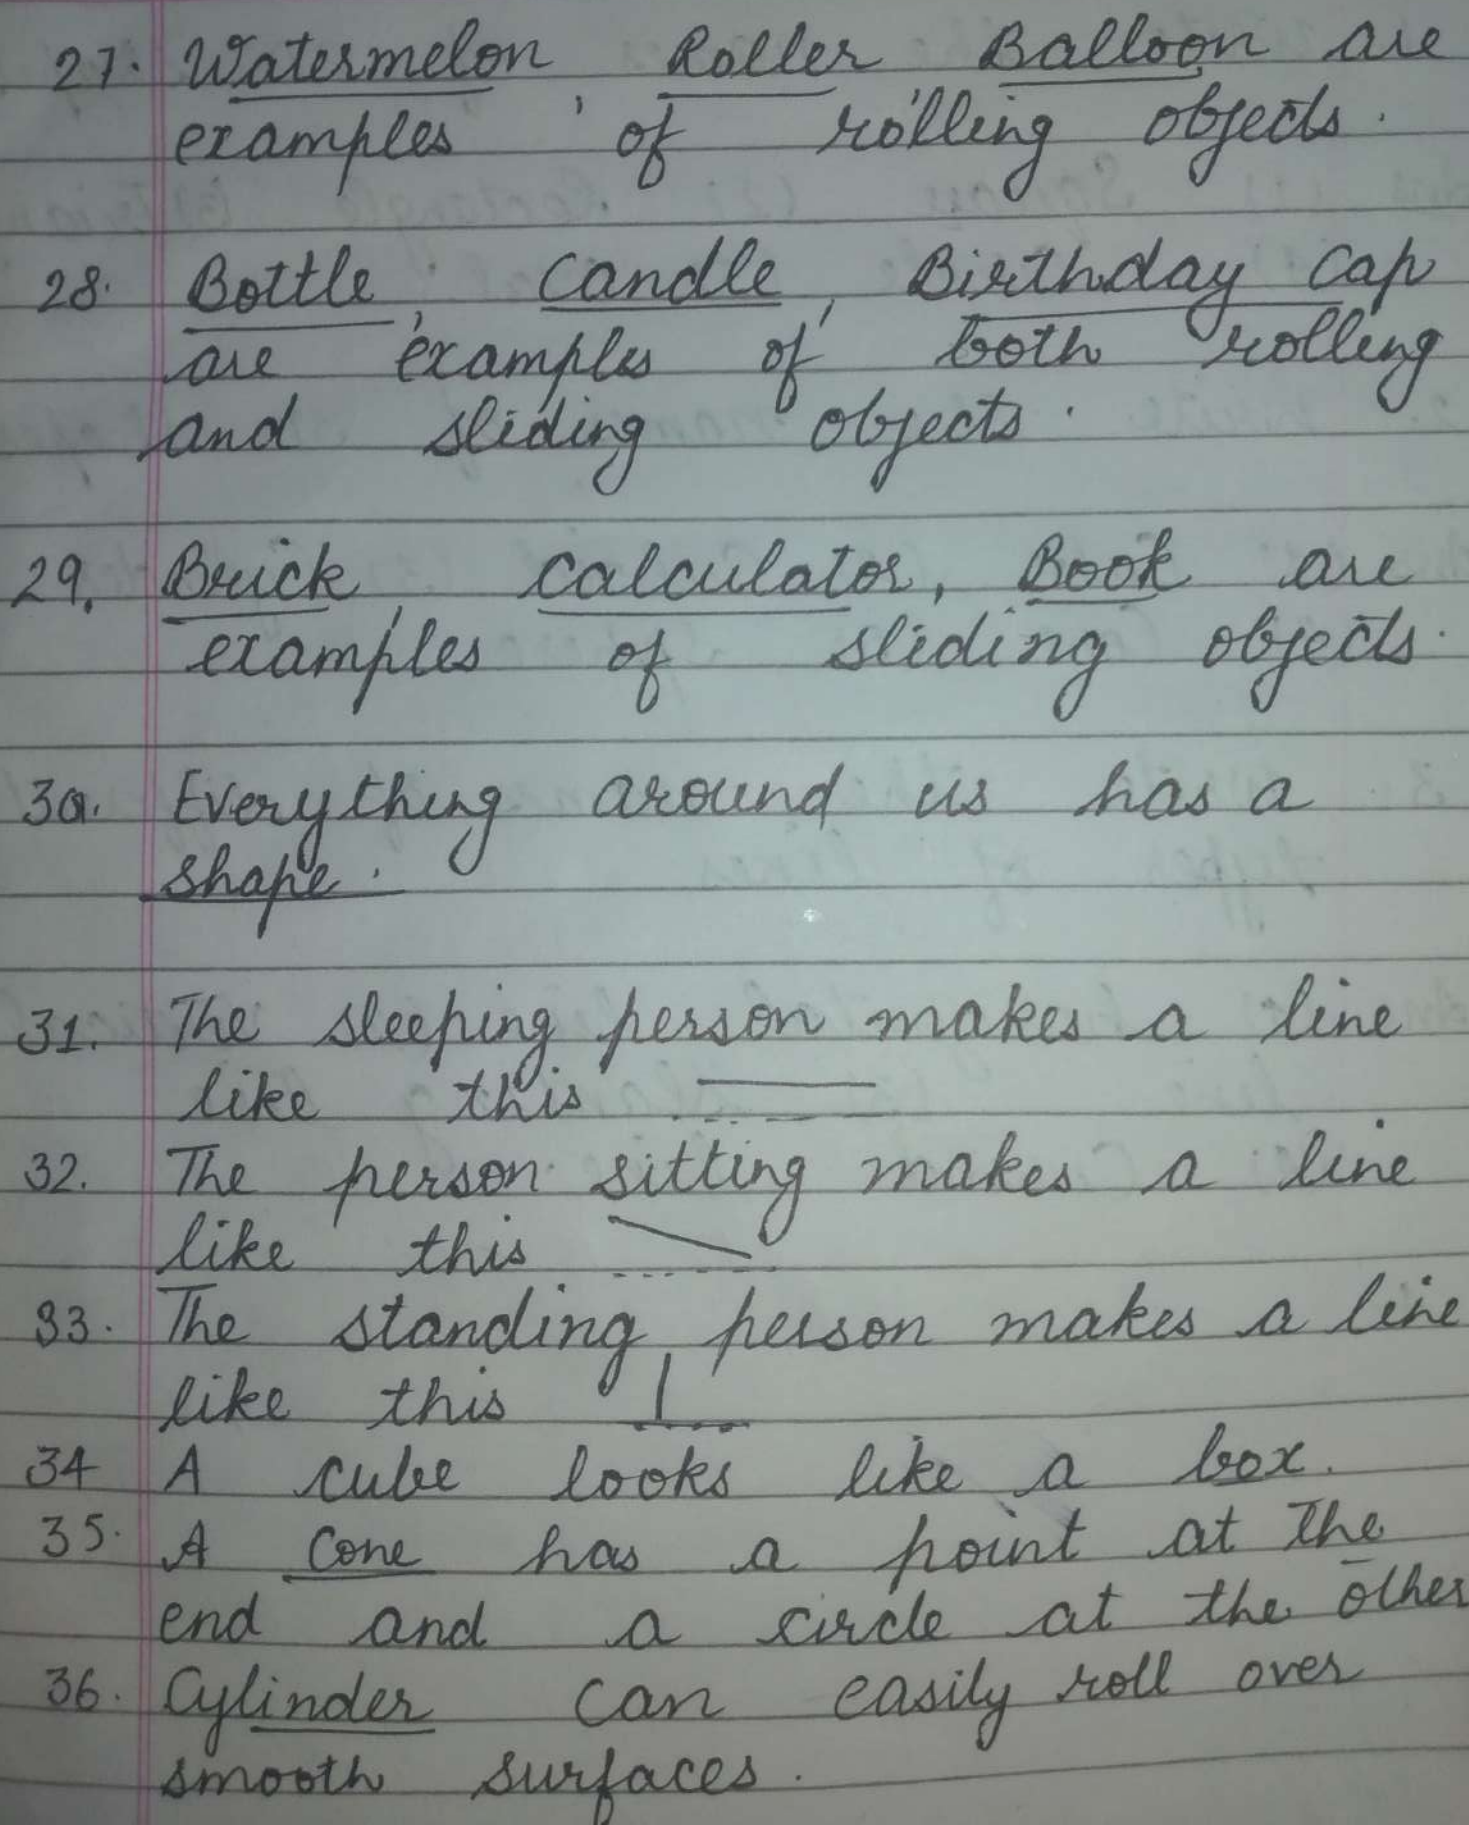 27. Watermelon, Roller, Balloon are
examples of rolling objects.
28. Bottle, Candle, Birthday Cap
are examples of both rolling
and sliding objects.
29. Brick, calculator, Book are
examples of sliding objects.
30. Everything around us has a
shape.
31. The sleeping person makes a line
like this
32. The person sitting makes a line
like this
33. The standing person makes a line
like this
34 A cube looks like a box.
35. A Cone has a point at the
end and a circle at the other
36. Cylinder can easily roll over
smooth surfaces.